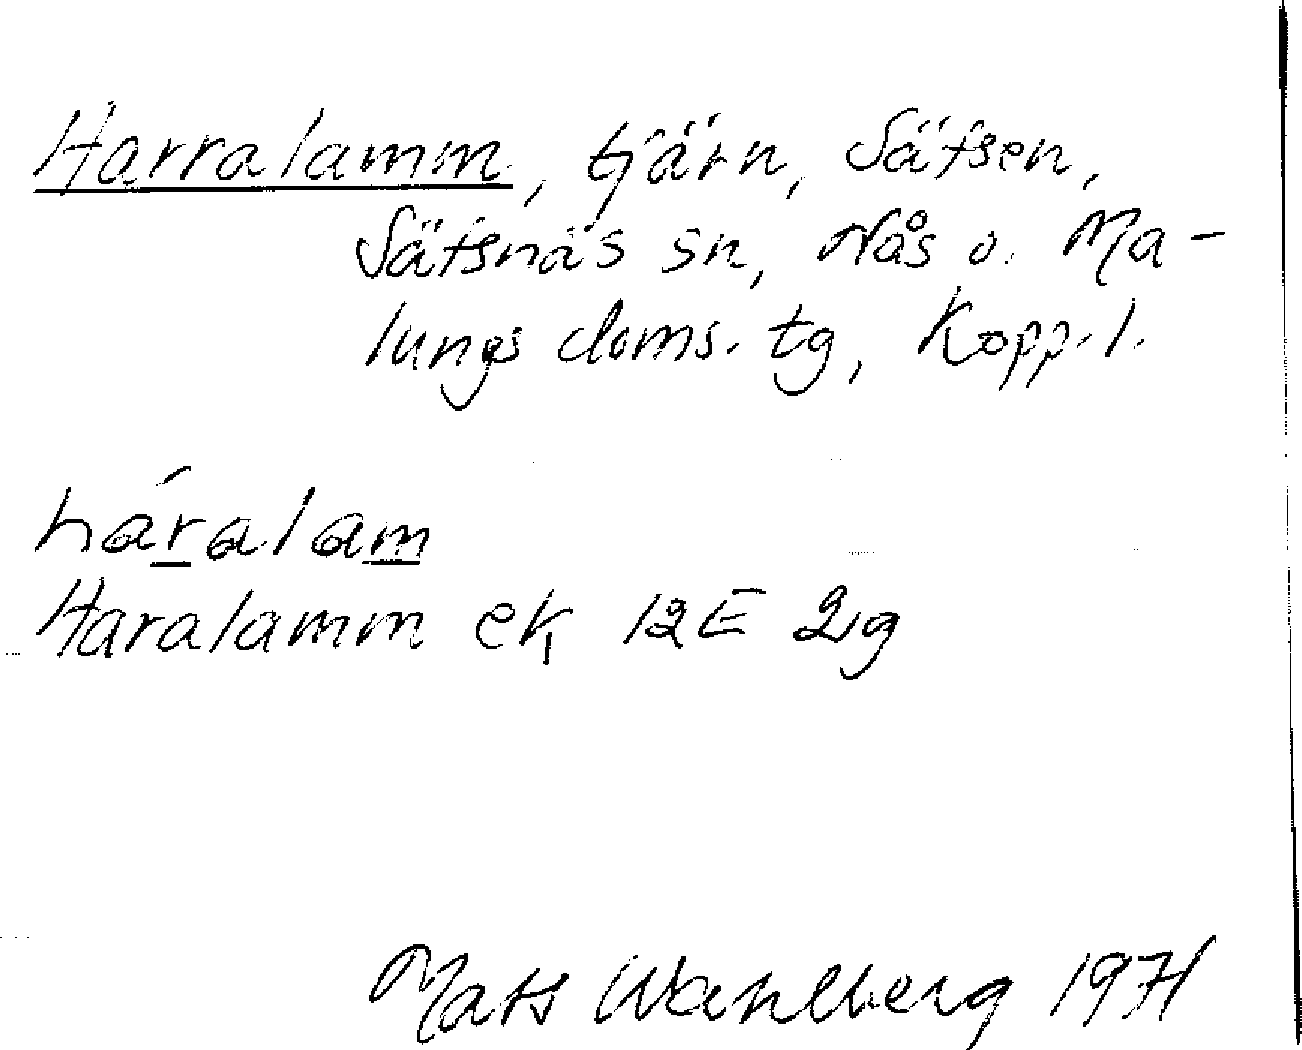 Harralamm, tjärn, Sätsen,
Sätsnäs sn, Nås o. Ma-
lungs doms. tg, Kopp. l.
háralam
Haralamm ek 12E 2g
Mats Wahlberg 1971